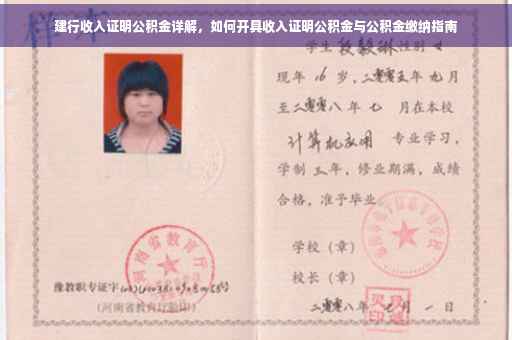 建行收入证明公积金详解，如何开具收入证明公积金与公积金缴纳指南
学生段毅琳性别女
现年16岁，二零零五年九月
至二零零八年七月在本校
计算机应用 专业学习，
学制三年，修业期满，成绩
合格，准予毕业。
学校（章）
校长（章）
河南省教育厅
豫教职专证字
（河南省教育厅验印）
二零零八年七月一日